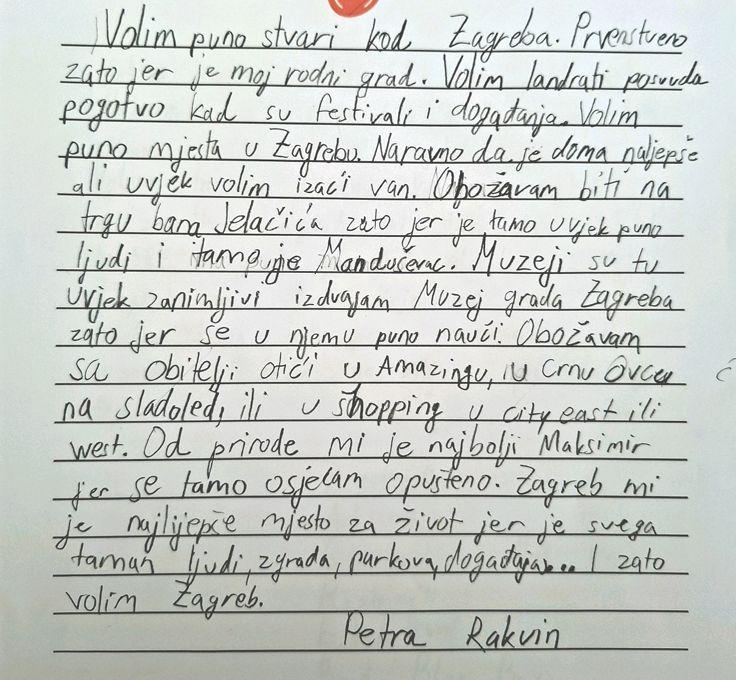 Volim puno stvari kod Zagreba. Prvenstveno
zato jer je moj rodni grad. Volim landrati posvuda
pogotvo kad su festivali i događanja. Volim
puno mjesta u Zagrebu. Naravno da je doma najlepše
ali uvjek volim izaći van. Obožavam biti na
trgu bana Jelačića zato jer je tamo uvjek puno
ljudi i tamo je Manduševac. Muzeji su tu
uvjek zanimljivi izdvajam Muzej grada Zagreba
zato jer se u njemu puno nauči. Obožavam
sa obitelji otići u Amazingu, u Crnu Ovcu
na sladoled, ili u shopping u city east ili
west. Od prirode mi je najbolji Maksimir
jer se tamo osjećam opušteno. Zagreb mi
je najlijepše mjesto za život jer je svega
taman ljudi, zgrada, parkova, događaja... I zato
volim Zagreb.
Petra Rakvin